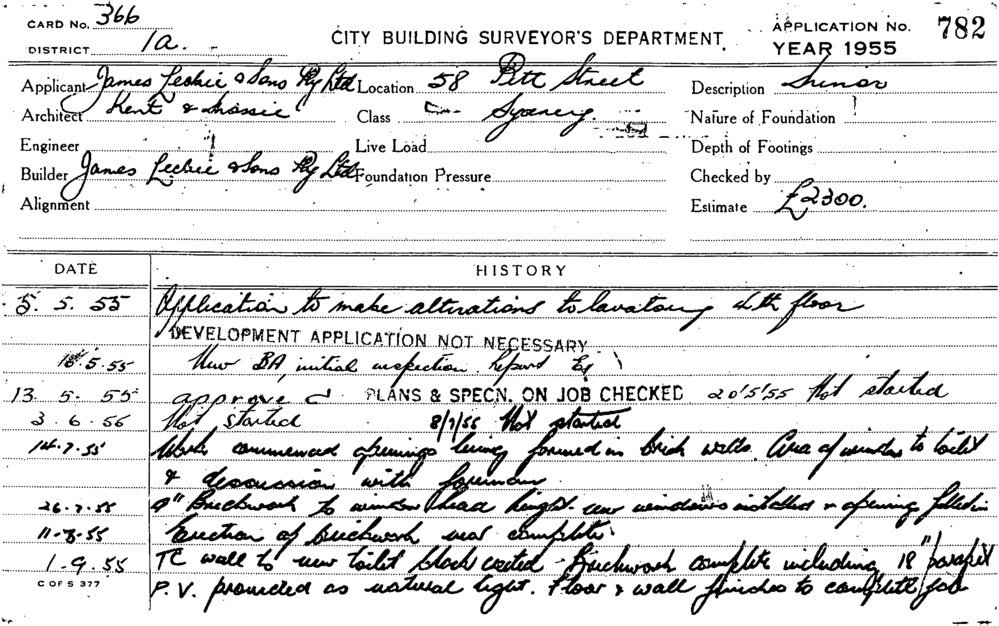 CARD No. 366
DISTRICT 1a.
CITY BUILDING SURVEYOR'S DEPARTMENT.
APPLICATION No. 782
YEAR 1955
Applicant James Leckie & Sons Pty Ltd Location 58 Pitt Street Description Minor
Architect Kent & Massie Class Sydney. Nature of Foundation
Engineer Live Load Depth of Footings
Builder James Leckie & Sons Pty Ltd Foundation Pressure Checked by
Alignment Estimate £2300.
DATE HISTORY
5. 5. 55 Application to make alterations to lavatory 4th floor
DEVELOPMENT APPLICATION NOT NECESSARY
5.55 New BA, initial inspection. Report
13. 5. 55 approved PLANS & SPECN. ON JOB CHECKED 20.5.55 Not started
3. 6. 55 Not started 8/7/55 Not started
14.7.55 Work commenced openings being formed in brick walls. Area of window to toilet
& discussion with foreman
26.7.55 9" Brickwork to window head height new windows installed & opening filled in
11.8.55 Erection of brickwork near complete.
1.9.55 TC wall to new toilet block erected Brickwork complete including 18" parapet
C OF S 377
P.V. provided as natural light. Floor & wall finishes to complete job